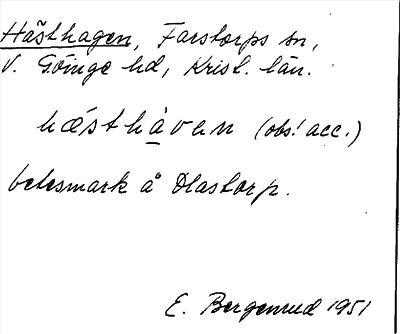 Hästhagen, Farstorps sn,
V. Göinge hd, Krist. län.
hæ´sthàvan (obs! acc.)
betesmark å Olastorp.
E. Bergenrud 1951